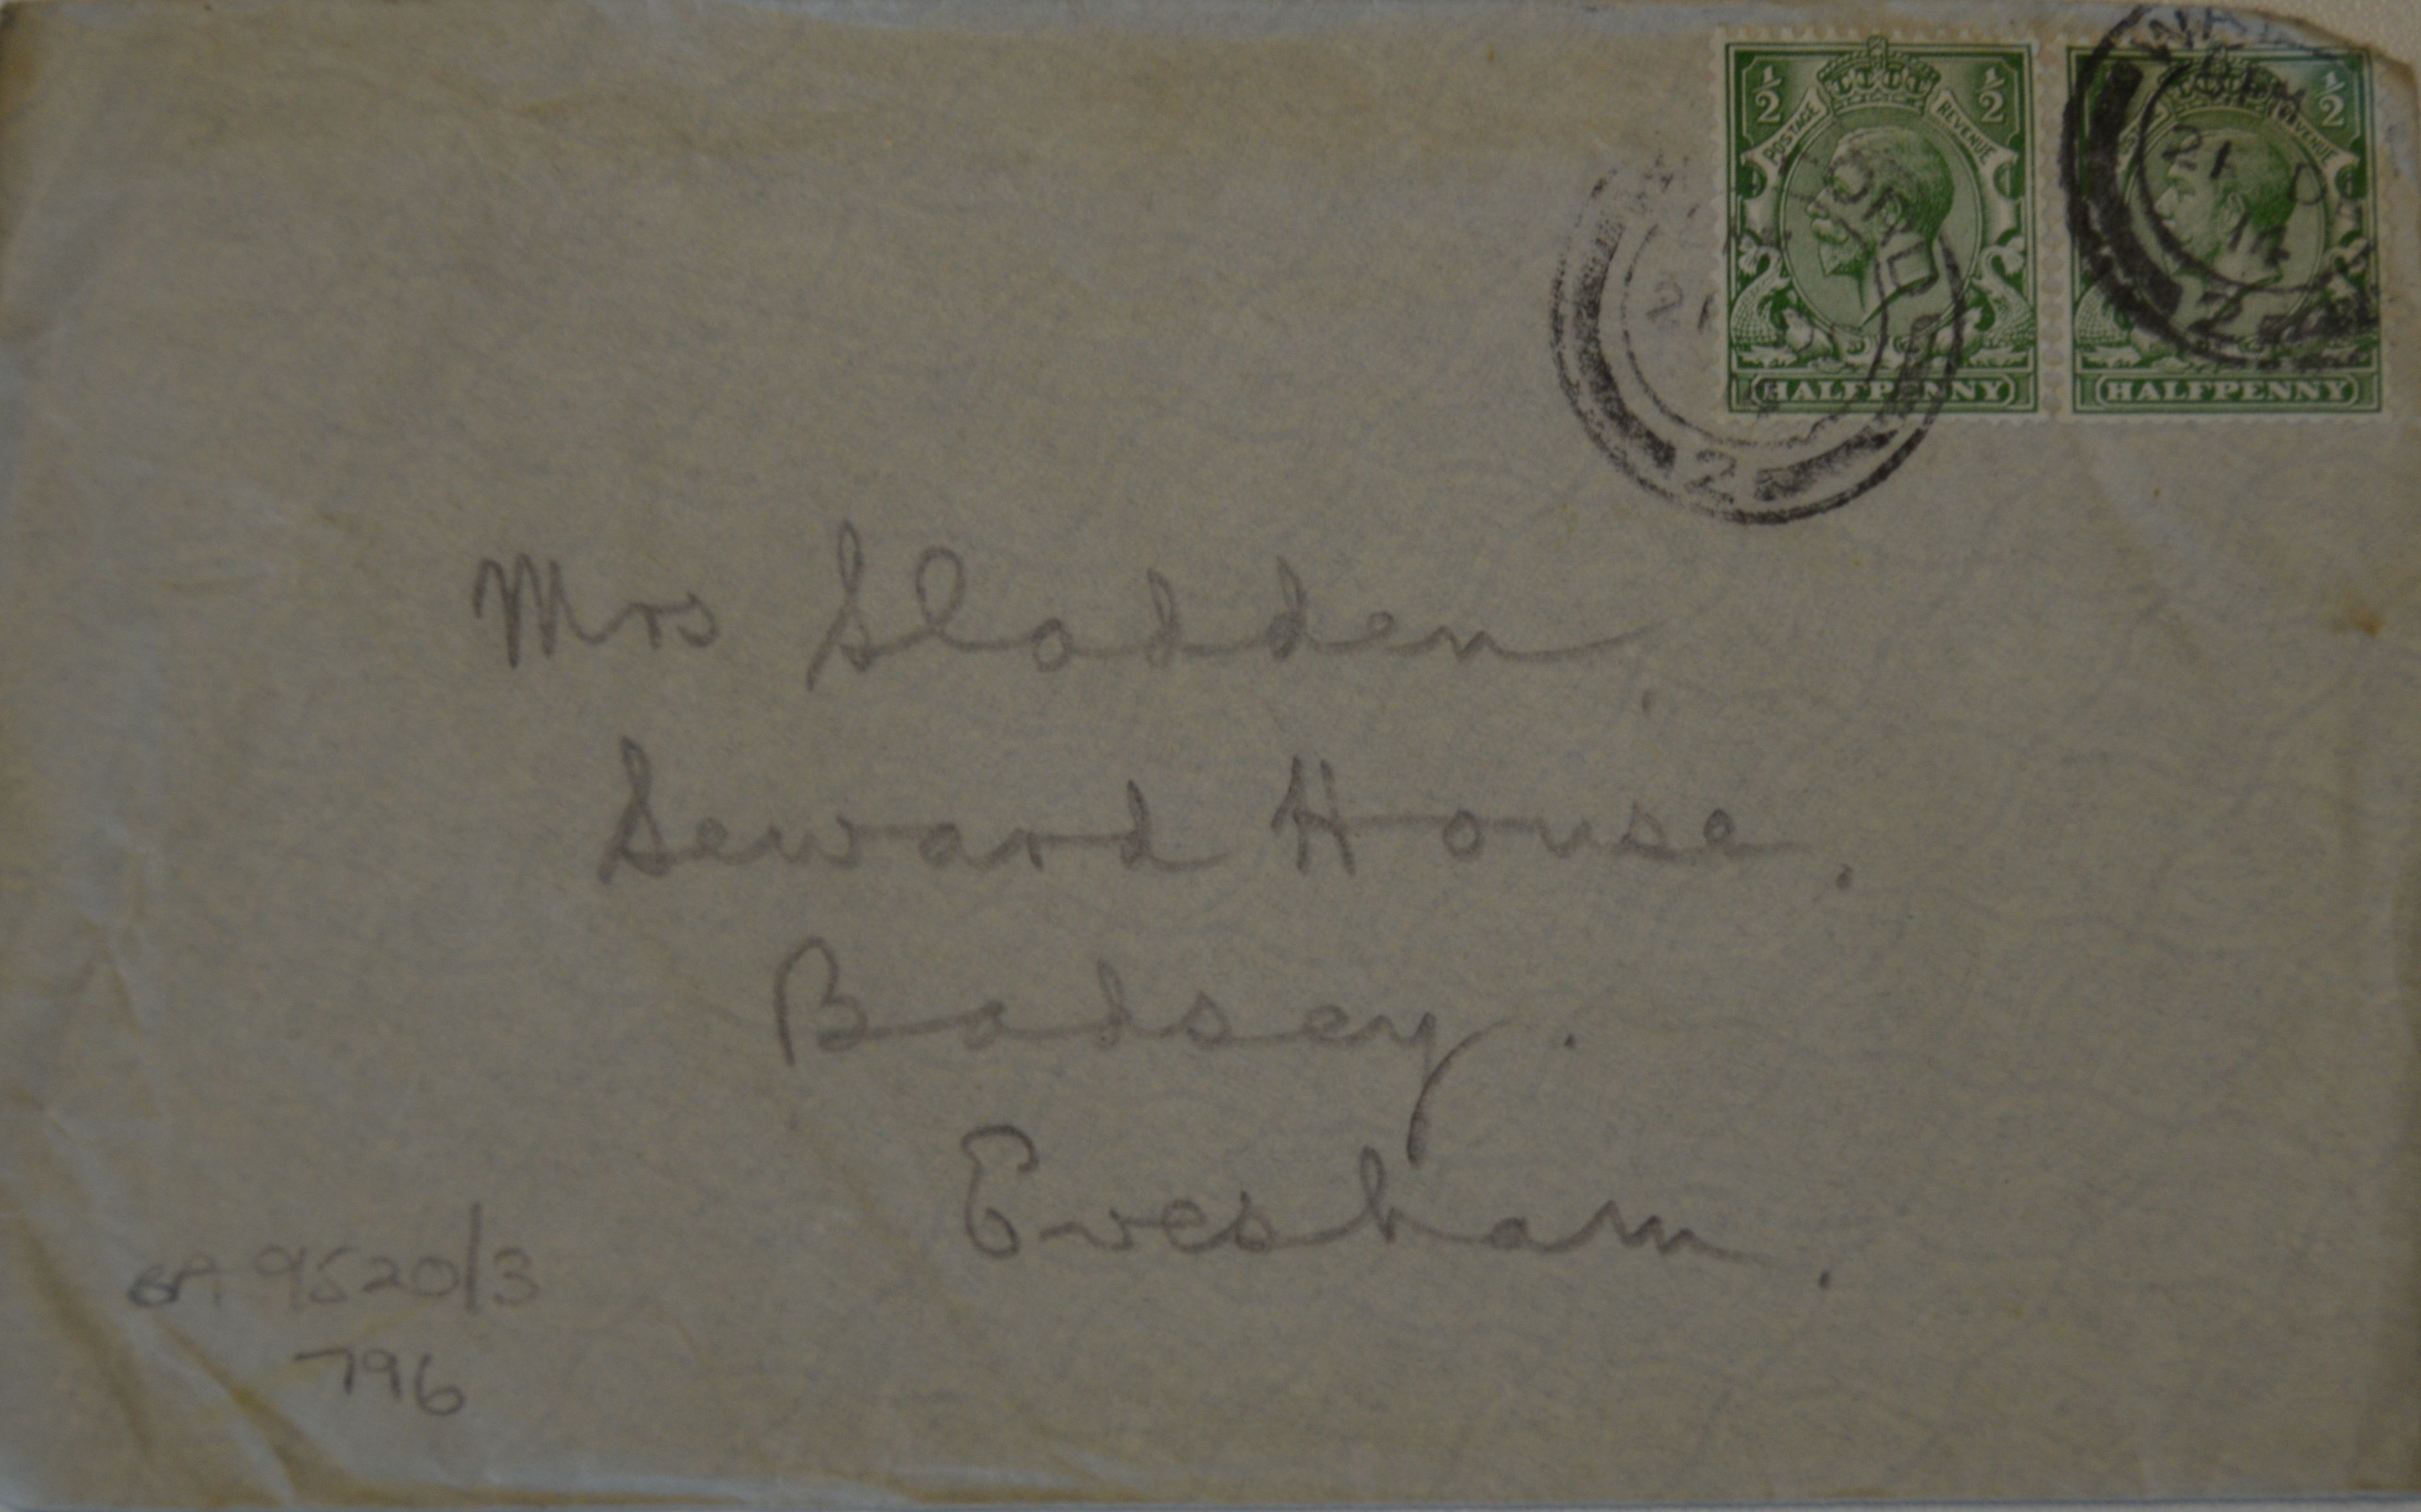 ½ POSTAGE REVENUE ½
HALFPENNY
½ REVENUE ½
HALFPENNY
21
2
21 D
14
2
Mrs Sladden,
Seward House.
Badsey.
Evesham.
9520/3
796